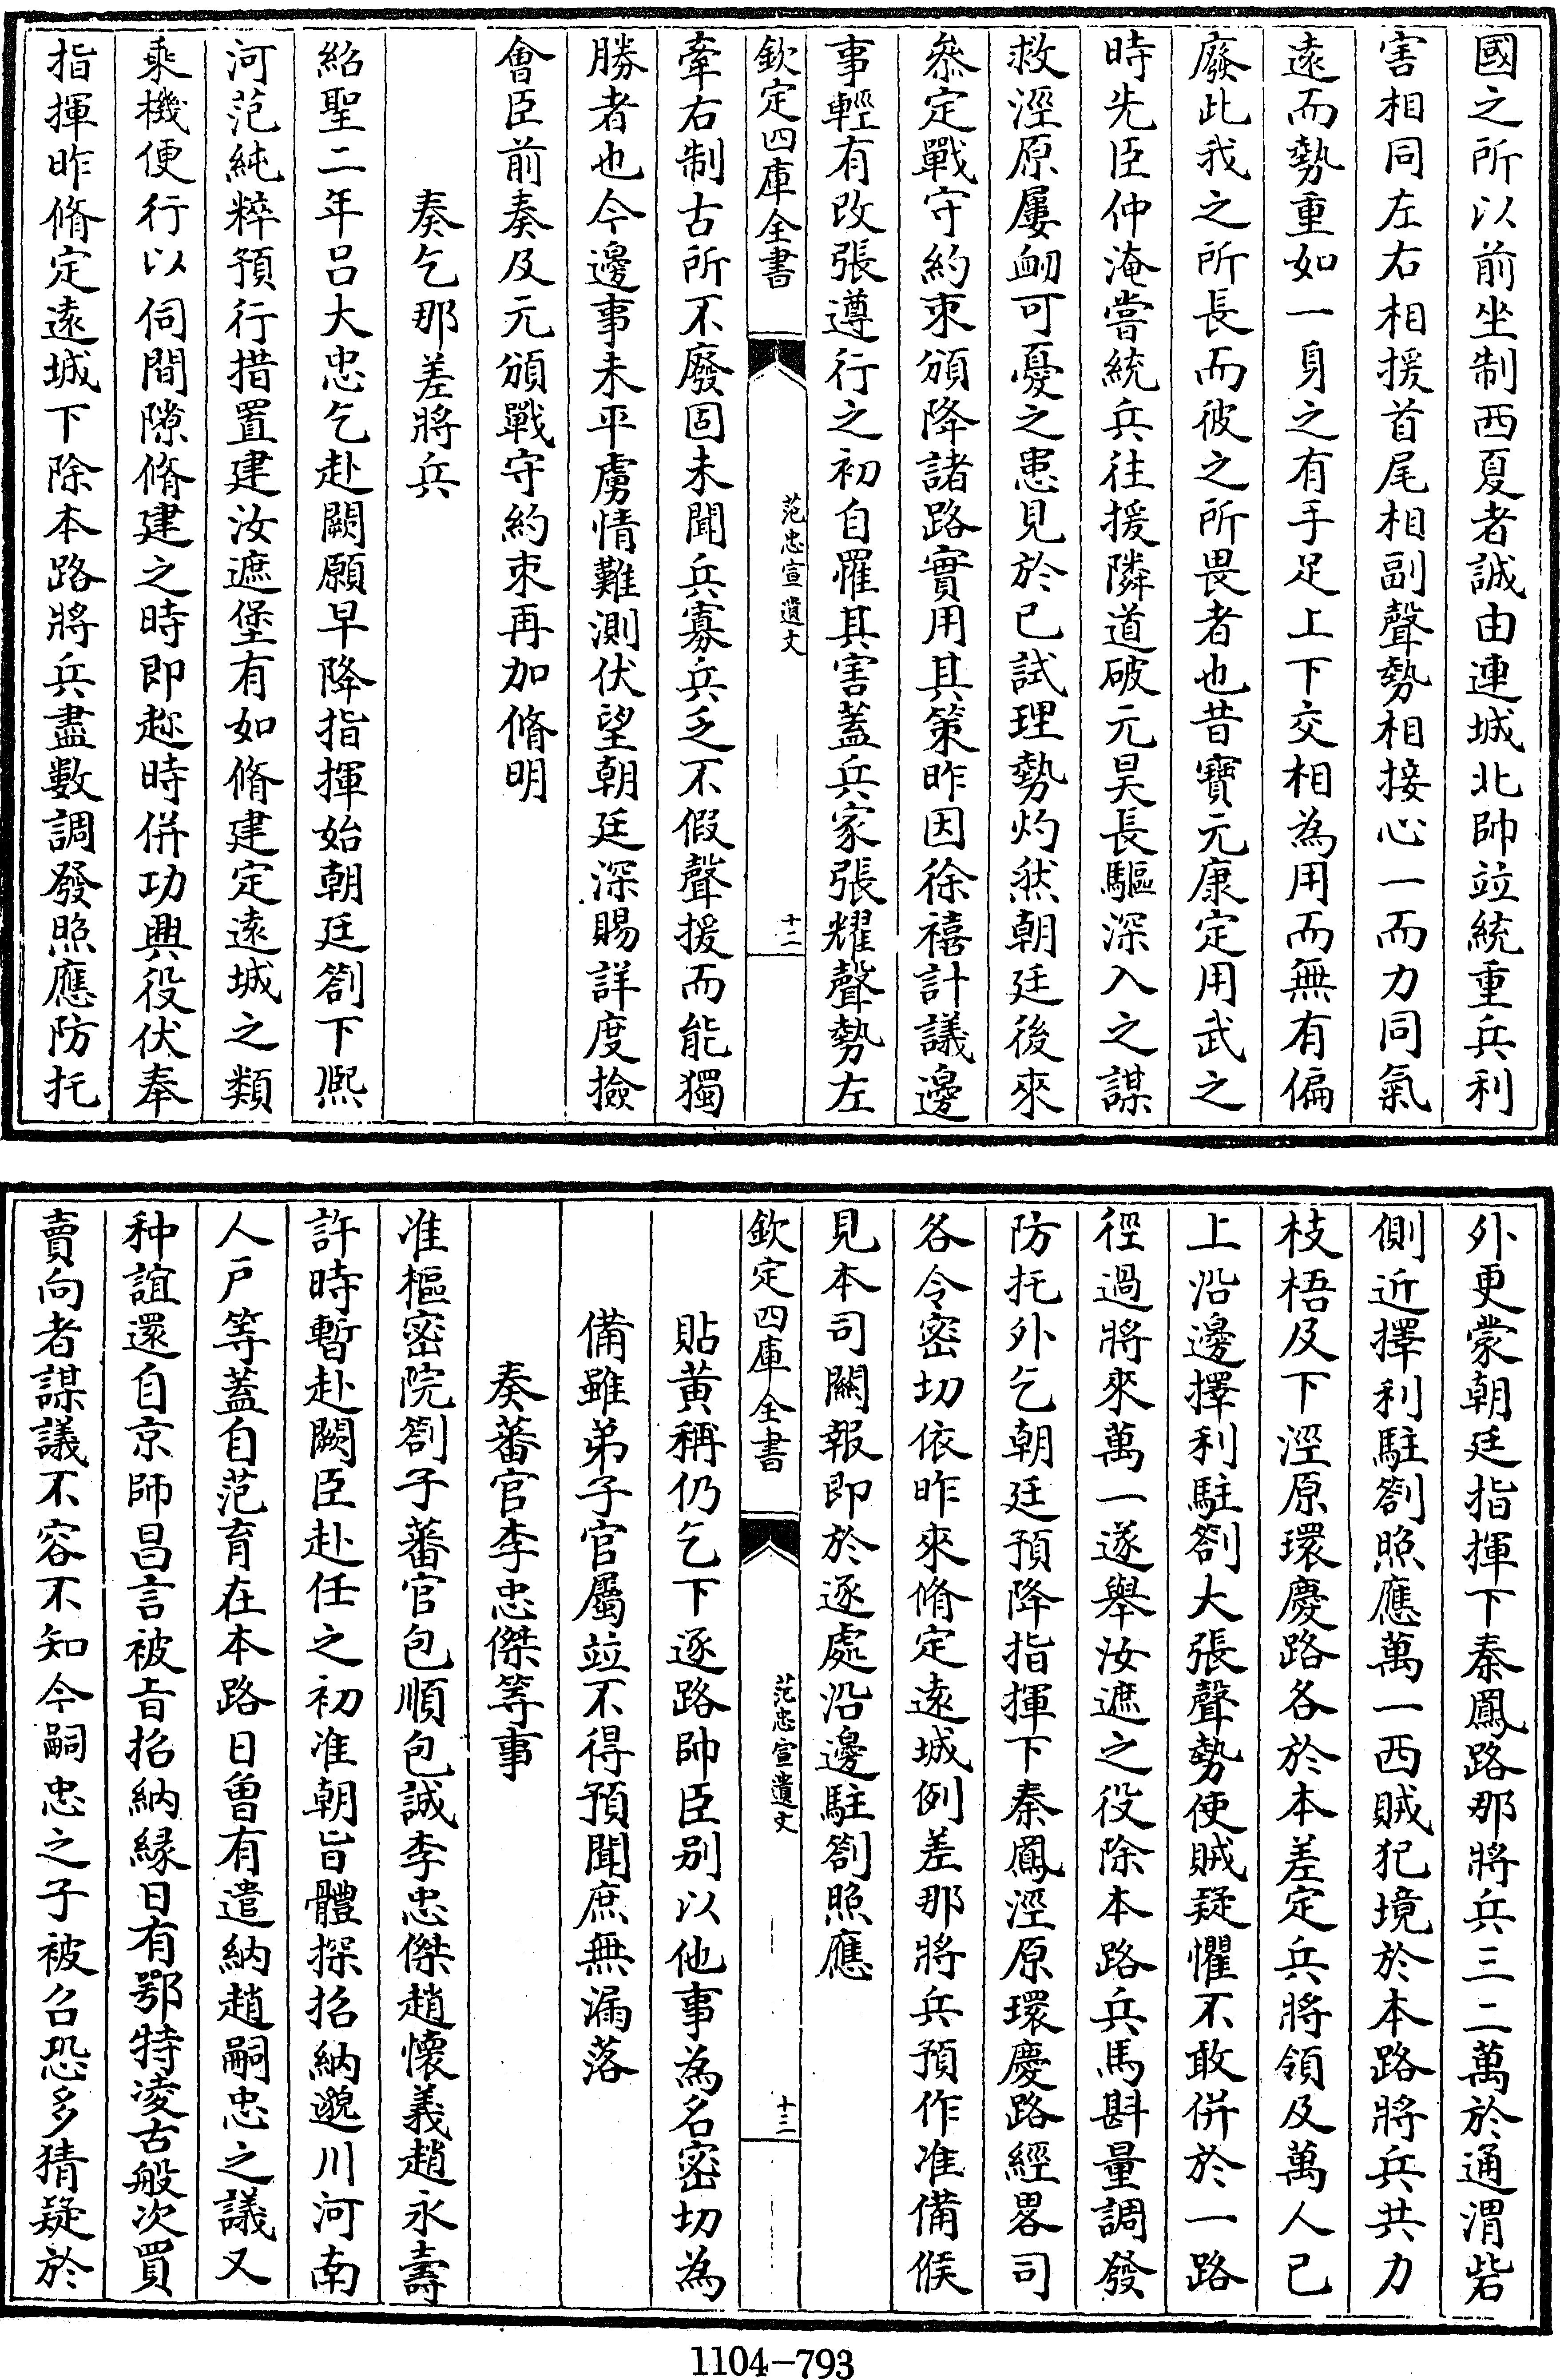 國之所以前坐制西夏者誠由連城北帥竝統重兵利
害相同左右相援首尾相副聲勢相接心一而力同氣
遠而勢重如一身之有手足上下交相為用而無有偏
廢此我之所長而彼之所畏者也昔寶元康定用武之
時先臣仲淹嘗統兵往援隣道破元昊長驅深入之謀
救涇原屢衂可憂之患見於已試理勢灼然朝廷後來
叅定戰守約束頒降諸路實用其策昨因徐禧計議邊
事輕有改張遵行之初自罹其害蓋兵家張耀聲勢左
欽定四庫全書
范忠宣遺文
十二
牽右制古所不廢固未聞兵寡兵乏不假聲援而能獨
勝者也今邊事未平虜情難測伏望朝廷深賜詳度撿
會臣前奏及元頒戰守約束再加脩明
奏乞那差將兵
紹聖二年呂大忠乞赴闕願早降指揮始朝廷劄下熙
河范純粹預行措置建汝遮堡有如脩建定遠城之類
乘機便行以伺間隙脩建之時即趂時併功興役伏奉
指揮昨脩定遠城下除本路將兵盡數調發照應防托
外更蒙朝廷指揮下秦鳳路那將兵三二萬於通渭砦
側近擇利駐劄照應萬一西賊犯境於本路將兵共力
枝梧及下涇原環慶路各於本差定兵將領及萬人已
上沿邊擇利駐劄大張聲勢使賊疑懼不敢併於一路
徑過將來萬一遂舉汝遮之役除本路兵馬斟量調發
防托外乞朝廷預降指揮下秦鳳涇原環慶路經畧司
各令密切依昨來脩定遠城例差那將兵預作准備候
見本司關報即於逐處沿邊駐劄照應
欽定四庫全書
范忠宣遺文
十三
貼黄稱仍乞下逐路帥臣别以他事為名密切為
備雖弟子官屬竝不得預聞庶無漏落
奏蕃官李忠傑等事
准樞密院劄子蕃官包順包誠李忠傑趙懷義趙永壽
許時暫赴闕臣赴任之初准朝旨體探招納邈川河南
人戶等蓋自范育在本路日曾有遣納趙嗣忠之議又
种誼還自京師昌言被㫖招納緣日有鄂特凌古般次買
賣向者謀議不容不知今嗣忠之子被召恐多猜疑於
1104-793